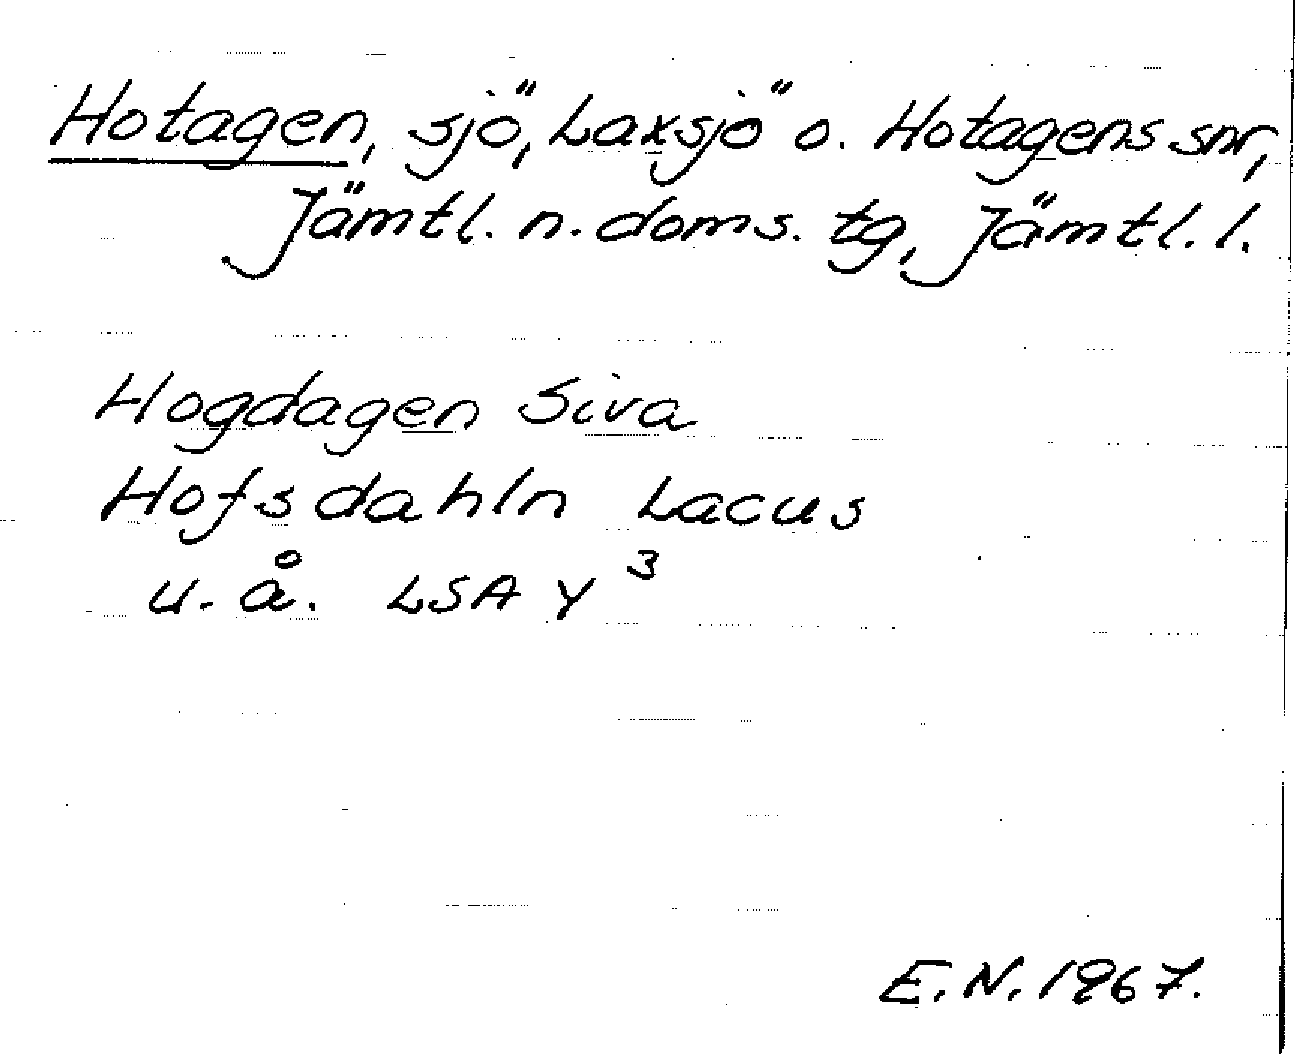 Hotagen, sjö, Laxsjö o. Hotagens snr,
Jämtl. n. doms. tg, Jämtl. l.
Hogdagen Siva
Hofsdahln Lacus
u.å. LSA Y 3
E.N. 1967.